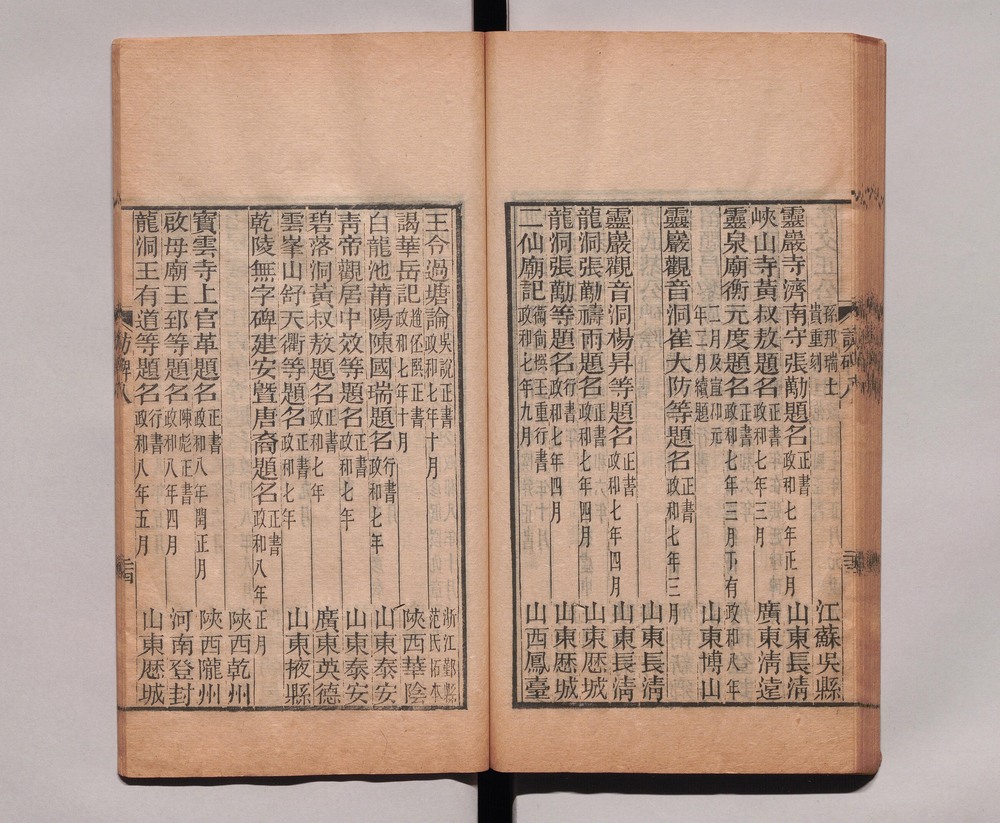 孫邦瑞士貴重刻 江蘇吳縣
靈巖寺濟南守張勱題名 正書政和七年正月 山東長清
峽山寺黃叔敖題名 正書政和七年三月 廣東清遠
靈泉廟衡元度題名 正書政和七年三月下有政和八年二月及宣和元年二月續題 山東博山
靈巖觀音洞崔大防等題名 正書政和七年三月 山東長清
靈巖觀音洞楊昇等題名 正書政和七年四月 山東長清
龍洞張勱禱雨題名 正書政和七年四月 山東歷城
龍洞張勱等題名 行書政和七年四月 山東歷城
二仙廟記 王重行書政和七年九月 山西鳳臺
王令過塘論 吳說正書政和七年十月 浙江鄞縣范氏拓本
謁華岳記 趙伾熙正書政和七年十月 陝西華陰
白龍池莆陽陳國瑞題名 行書政和七年 山東泰安
青帝觀居中效等題名 正書政和七年 山東泰安
碧落洞黃叔敖題名 正書政和七年 廣東英德
雲峯山舒天衢等題名 正書政和七年 山東掖縣
乾陵無字碑建安曁唐裔題名 正書政和八年正月 陝西乾州
寶雲寺上官革題名 正書政和八年閏正月 陝西隴州
啟母廟王郅等題名 陳彪正書政和八年四月 河南登封
龍洞王有道等題名 行書政和八年五月 山東歷城
訪碑八